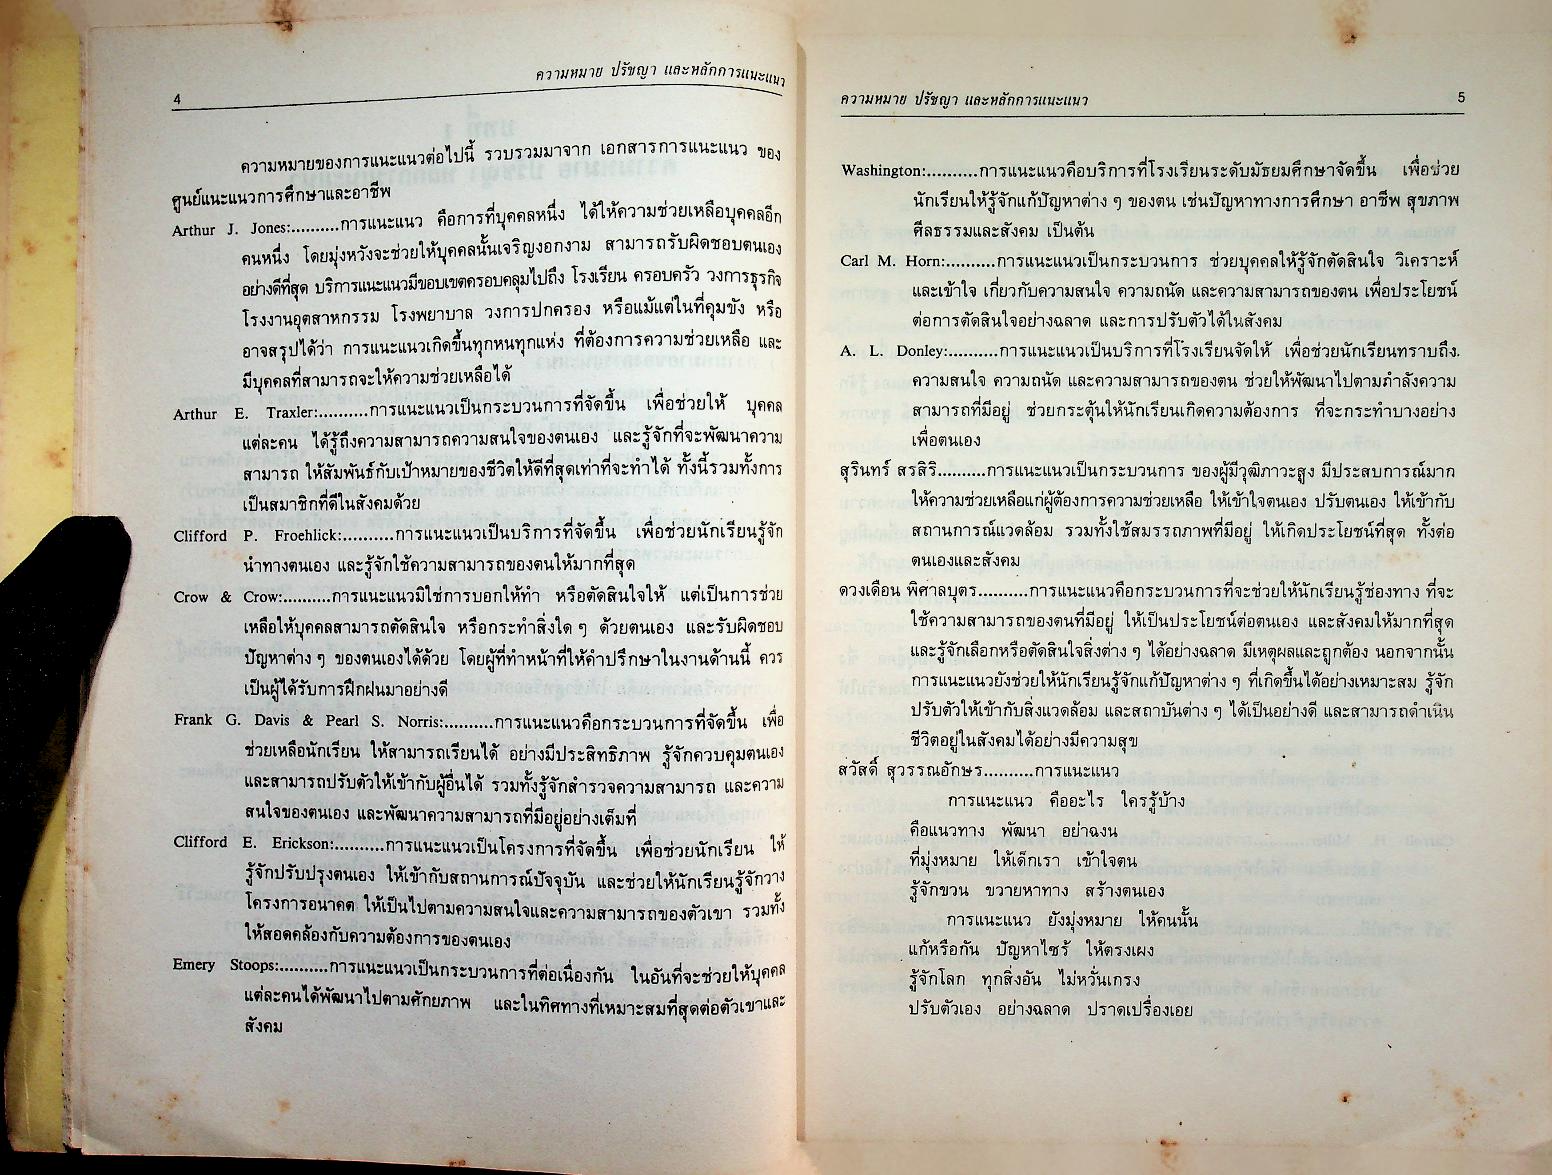 4
ความหมาย ปรัชญา และหลักการแนะแนว
ความหมายของการแนะแนวต่อไปนี้ รวบรวมมาจาก เอกสารการแนะแนว ของ
ศูนย์แนะแนวการศึกษาและอาชีพ
Arthur J. Jones:..........การแนะแนว คือการที่บุคคลหนึ่ง ได้ให้ความช่วยเหลือบุคคลอีก
คนหนึ่ง โดยมุ่งหวังจะช่วยให้บุคคลนั้นเจริญงอกงาม สามารถรับผิดชอบตนเอง
อย่างดีที่สุด บริการแนะแนวมีขอบเขตครอบคลุมไปถึง โรงเรียน ครอบครัว วงการธุรกิจ
โรงงานอุตสาหกรรม โรงพยาบาล วงการปกครอง หรือแม้แต่ในที่คุมขัง หรือ
อาจสรุปได้ว่า การแนะแนวเกิดขึ้นทุกหนทุกแห่ง ที่ต้องการความช่วยเหลือ และ
มีบุคคลที่สามารถจะให้ความช่วยเหลือได้
Arthur E. Traxler:..........การแนะแนวเป็นกระบวนการที่จัดขึ้น เพื่อช่วยให้ บุคคล
แต่ละคน ได้รู้ถึงความสามารถความสนใจของตนเอง และรู้จักที่จะพัฒนาความ
สามารถ ให้สัมพันธ์กับเป้าหมายของชีวิตให้ดีที่สุดเท่าที่จะทำได้ ทั้งนี้รวมทั้งการ
เป็นสมาชิกที่ดีในสังคมด้วย
Clifford P. Froehlick:..........การแนะแนวเป็นบริการที่จัดขึ้น เพื่อช่วยนักเรียนรู้จัก
นำทางตนเอง และรู้จักใช้ความสามารถของตนให้มากที่สุด
Crow & Crow:..........การแนะแนวมิใช่การบอกให้ทำ หรือตัดสินใจให้ แต่เป็นการช่วย
เหลือให้บุคคลสามารถตัดสินใจ หรือกระทำสิ่งใด ๆ ด้วยตนเอง และรับผิดชอบ
ปัญหาต่าง ๆ ของตนเองได้ด้วย โดยผู้ที่ทำหน้าที่ให้คำปรึกษาในงานด้านนี้ ควร
เป็นผู้ได้รับการฝึกฝนมาอย่างดี
Frank G. Davis & Pearl S. Norris:..........การแนะแนวคือกระบวนการที่จัดขึ้น เพื่อ
ช่วยเหลือนักเรียน ให้สามารถเรียนได้ อย่างมีประสิทธิภาพ รู้จักควบคุมตนเอง
และสามารถปรับตัวให้เข้ากับผู้อื่นได้ รวมทั้งรู้จักสำรวจความสามารถ และความ
สนใจของตนเอง และพัฒนาความสามารถที่มีอยู่อย่างเต็มที่
Clifford E. Erickson:..........การแนะแนวเป็นโครงการที่จัดขึ้น เพื่อช่วยนักเรียน ให้
รู้จักปรับปรุงตนเอง ให้เข้ากับสถานการณ์ปัจจุบัน และช่วยให้นักเรียนรู้จักวาง
โครงการอนาคต ให้เป็นไปตามความสนใจและความสามารถของตัวเขา รวมทั้ง
ให้สอดคล้องกับความต้องการของตนเอง
Emery Stoops:..........การแนะแนวเป็นกระบวนการที่ต่อเนื่องกัน ในอันที่จะช่วยให้บุคคล
แต่ละคนได้พัฒนาไปตามศักยภาพ และในทิศทางที่เหมาะสมที่สุดต่อตัวเขาและ
สังคม
ความหมาย ปรัชญา และหลักการแนะแนว
5
Washington:..........การแนะแนวคือบริการที่โรงเรียนระดับมัธยมศึกษาจัดขึ้น เพื่อช่วย
นักเรียนให้รู้จักแก้ปัญหาต่าง ๆ ของตน เช่นปัญหาทางการศึกษา อาชีพ สุขภาพ
ศีลธรรมและสังคม เป็นต้น
Carl M. Horn:..........การแนะแนวเป็นกระบวนการ ช่วยบุคคลให้รู้จักตัดสินใจ วิเคราะห์
และเข้าใจ เกี่ยวกับความสนใจ ความถนัด และความสามารถของตน เพื่อประโยชน์
ต่อการตัดสินใจอย่างฉลาด และการปรับตัวได้ในสังคม
A. L. Donley:..........การแนะแนวเป็นบริการที่โรงเรียนจัดให้ เพื่อช่วยนักเรียนทราบถึง
ความสนใจ ความถนัด และความสามารถของตน ช่วยให้พัฒนาไปตามกำลังความ
สามารถที่มีอยู่ ช่วยกระตุ้นให้นักเรียนเกิดความต้องการ ที่จะกระทำบางอย่าง
เพื่อตนเอง
สุรินทร์ สรสิริ..........การแนะแนวเป็นกระบวนการ ของผู้มีวุฒิภาวะสูง มีประสบการณ์มาก
ให้ความช่วยเหลือแก่ผู้ต้องการความช่วยเหลือ ให้เข้าใจตนเอง ปรับตนเอง ให้เข้ากับ
สถานการณ์แวดล้อม รวมทั้งใช้สมรรถภาพที่มีอยู่ ให้เกิดประโยชน์ที่สุด ทั้งต่อ
ตนเองและสังคม
ดวงเดือน พิศาลบุตร..........การแนะแนวคือกระบวนการที่จะช่วยให้นักเรียนรู้ช่องทาง ที่จะ
ใช้ความสามารถของตนที่มีอยู่ ให้เป็นประโยชน์ต่อตนเอง และสังคมให้มากที่สุด
และรู้จักเลือกหรือตัดสินใจสิ่งต่าง ๆ ได้อย่างฉลาด มีเหตุผลและถูกต้อง นอกจากนั้น
การแนะแนวยังช่วยให้นักเรียนรู้จักแก้ปัญหาต่าง ๆ ที่เกิดขึ้นได้อย่างเหมาะสม รู้จัก
ปรับตัวให้เข้ากับสิ่งแวดล้อม และสถาบันต่าง ๆ ได้เป็นอย่างดี และสามารถดำเนิน
ชีวิตอยู่ในสังคมได้อย่างมีความสุข
สวัสดิ์ สุวรรณอักษร..........การแนะแนว
การแนะแนว คืออะไร ใครรู้บ้าง
คือแนวทาง พัฒนา อย่าฉงน
ที่มุ่งหมาย ให้เด็กเรา เข้าใจตน
รู้จักขวน ขวายหาทาง สร้างตนเอง
การแนะแนว ยังมุ่งหมาย ให้คนนั้น
แก้หรือกัน ปัญหาไซร้ ให้ตรงเผง
รู้จักโลก ทุกสิ่งอัน ไม่หวั่นเกรง
ปรับตัวเอง อย่างฉลาด ปราดเปรื่องเอย